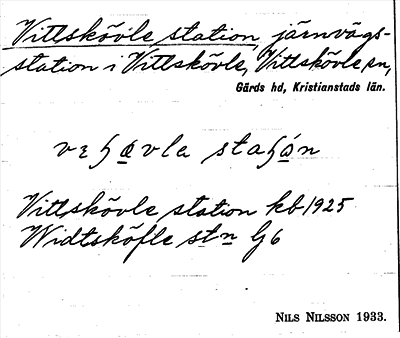 Vittskövle station, järnvägs-
station i Vittskövle, Vittskövle sn,
Gärds hd, Kristianstads län.
Vittskövle station kb 1925
Widtsköfle stn G6
NILS NILSSON 1933.